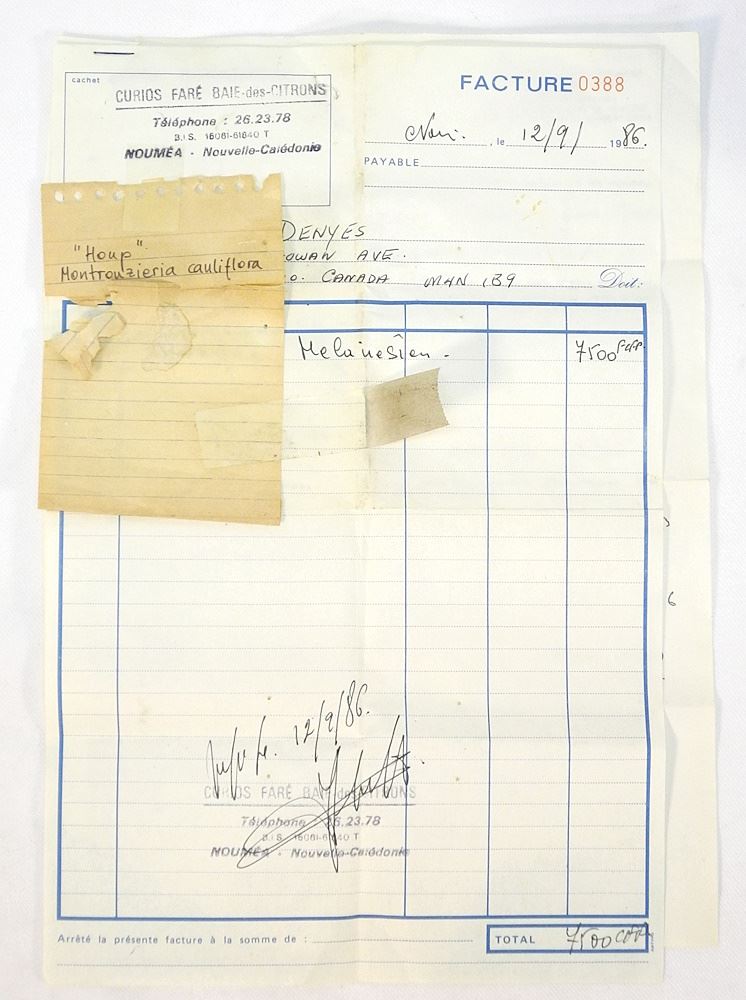 cachet
CURIOS FARÉ BAIE-des-CITRONS
Téléphone : 26.23.78
B.I.S. 15061-61640 T
NOUMÉA - Nouvelle-Calédonie
FACTURE 0388
Nou. , le 12/9/ 1986.
PAYABLE
DENYES
OWAN AVE.
O. CANADA M4N 1B9 Doit:
"Houp"
Montrouzieria cauliflora
Mélanésien. 7500
12/9/86.
CURIOS FARÉ BAIE-des-CITRONS
Téléphone : 26.23.78
B.I.S. 15061-61640 T
NOUMÉA - Nouvelle-Calédonie
Arrêté la présente facture à la somme de :
TOTAL 7500